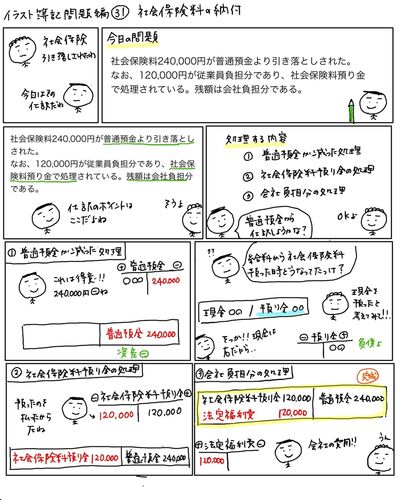 イラスト簿記問題編㉛ 社会保険料の納付
社会保険
引き落とされたわ
今日はその
仕訳だね
今日の問題
社会保険料240,000円が普通預金より引き落としされた。
なお、120,000円が従業員負担分であり、社会保険料預り金
で処理されている。残額は会社負担分である。
社会保険料240,000円が普通預金より引き落とし
された。
なお、120,000円が従業員負担分であり、社会保
険料預り金で処理されている。残額は会社負担分で
ある。
仕訳のポイントは
ここだよね
そうよ
処理する内容
① 普通預金が減った処理
② 社会保険料預り金の処理
③ 会社負担分の処理
普通預金から
仕訳しようかな?
OKよ
① 普通預金が減った処理
これは得意!!
240,000円⊖ね
⊕ 普通預金 ⊖
○○ 240,000
普通預金 240,000
資産⊖
??
給料から社会保険料
預った時どうなってたっけ?
現金○○ / 預り金○○
現金を
預ったと
考えてみて!!
そっか!!現金は
右だから…
⊖ 預り金 ⊕
○○
負債よ
② 社会保険料預り金の処理
預ったのを
払ったから
だね
⊖ 社会保険料預り金 ⊕
120,000 120,000
社会保険料預り金 120,000 普通預金 240,000
③ 会社負担分の処理
完成
社会保険料預り金 120,000 普通預金 240,000
法定福利費 120,000
⊕ 法定福利費 ⊖
120,000
会社の費用!!
うん